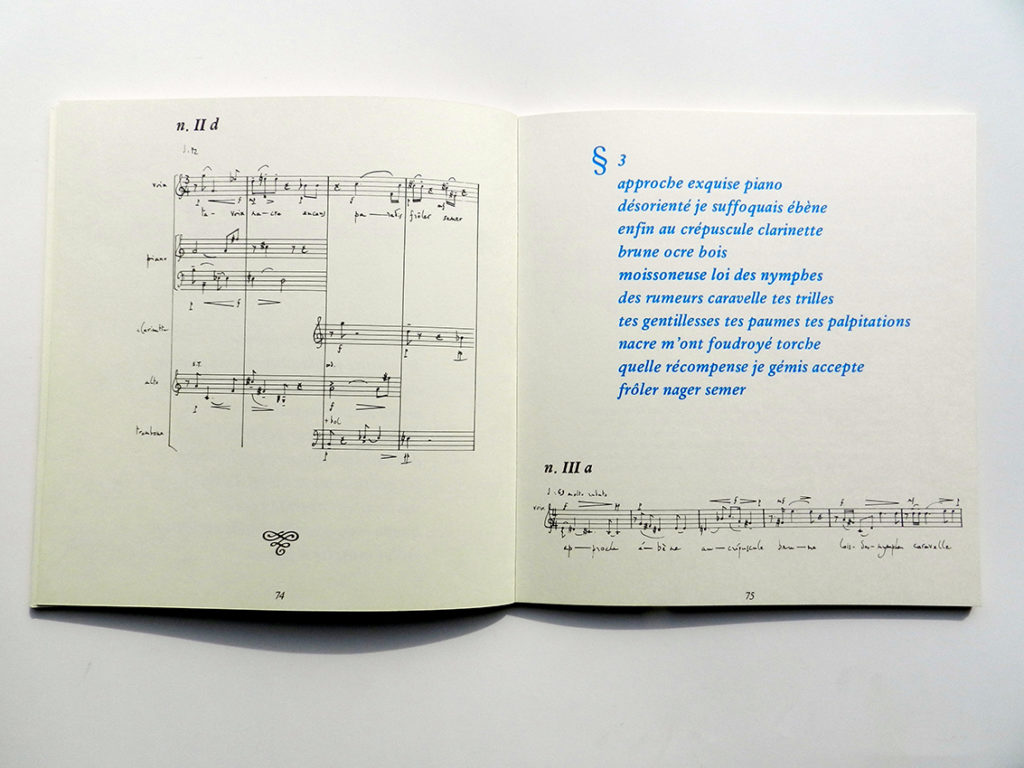 n. II d
voix
piano
clarinette
alto
trombone
74
§ 3
approche exquise piano
désorienté je suffoquais ébène
enfin au crépuscule clarinette
brune ocre bois
moissoneuse loi des nymphes
des rumeurs caravelle tes trilles
tes gentillesses tes paumes tes palpitations
nacre m’ont foudroyé torche
quelle récompense je gémis accepte
frôler nager semer
n. III a
molto rubato
voix
ap—proche é—bène au—crépuscule bru—ne lois-des-nymphes caravelle
75